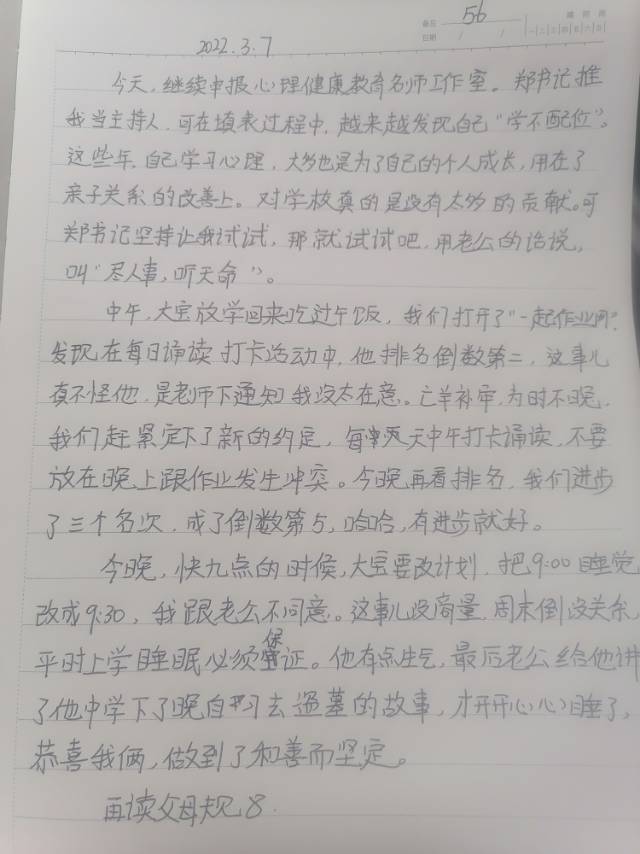 56
2022.3.7
今天，继续申报心理健康教育名师工作室。郑书记推
我当主持人，可在填表过程中，越来越发现自己“学不配位”。
这些年，自己学习心理，大多也是为了自己的个人成长，用在了
亲子关系的改善上。对学校真的是没有太多的贡献。可
郑书记坚持让我试试，那就试试吧，用老公的话说，
叫“尽人事，听天命”。
中午，大宝放学回来吃过午饭，我们打开了“一起作业网”，
发现在每日诵读打卡活动中，他排名倒数第二，这事儿
真不怪他，是老师下通知我没太在意。亡羊补牢，为时不晚，
我们赶紧定下了新的约定，每天中午打卡诵读，不要
放在晚上跟作业发生冲突。今晚再看排名，我们进步
了三个名次，成了倒数第5，哈哈，有进步就好。
今晚，快九点的时候，大宝要改计划，把9:00睡觉
改成9:30，我跟老公不同意。这事儿没商量，周末倒没关系，
平时上学睡眠必须保证。他有点生气，最后老公给他讲
了他中学下了晚自习去逛墓的故事，才开开心心睡了，
恭喜我俩，做到了和善而坚定。
再读父母规8.